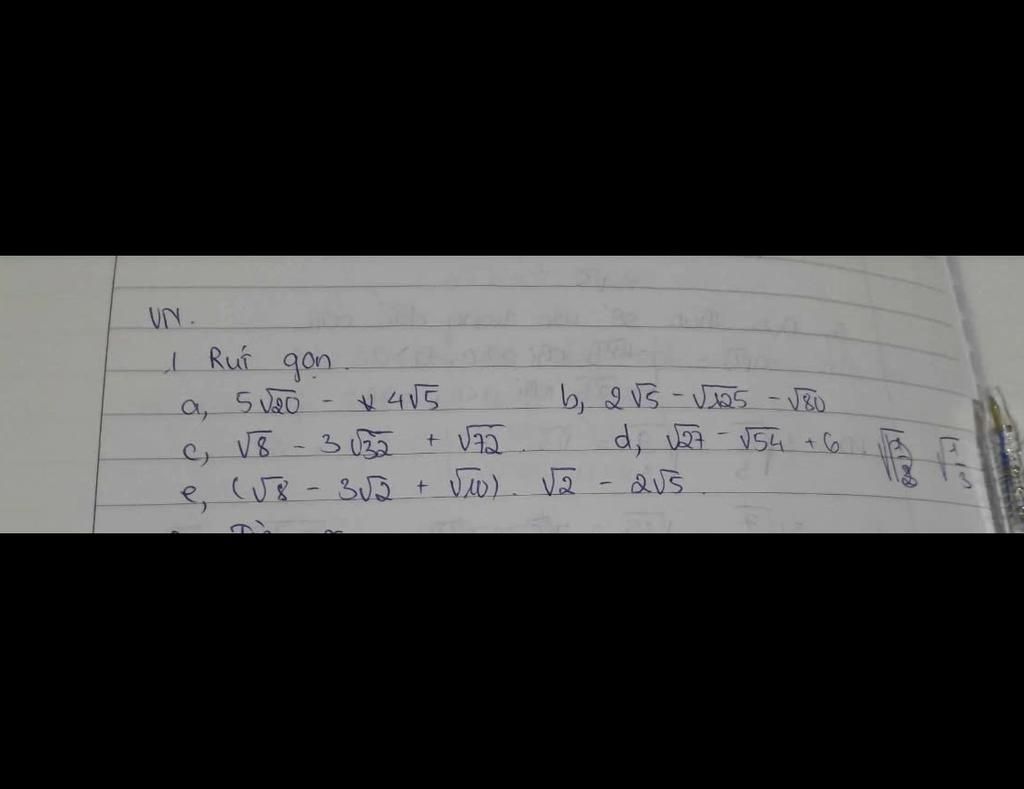 VN.
1 Rút gọn.
a, 5√20 - 4√5 b, 2√5 - √125 - √80
c, √8 - 3√32 + √72. d, √27 - √54 + 6 √1/3
e, (√8 - 3√2 + √10). √2 - 2√5.